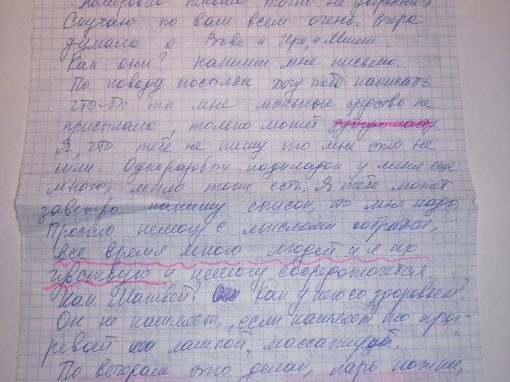 письмо точно не
Скучаю по вам всем очень. Вчера
думала о Вове и Ире, и Мише.
Как они? Напиши мне письмо.
По поводу посылки хочу тебе написать
чтоб ты мне мыльные средства не
присылала, только может зубную пасту.
Я, что тебе не пишу то мне это не
шли. Одноразовых подкладок у меня ещё
много, мыло тоже есть. Я тебе может
завтра напишу список, что мне надо
Просто немогу с мыслями собраться,
все время много людей и я их
чувствую и немогу сосредоточится.
Как Матвей? как у него со здоровьем?
Он не кашляет, если кашляет его про-
гревай лампой, массажируй.
По вечерам это делай, парь ножки,